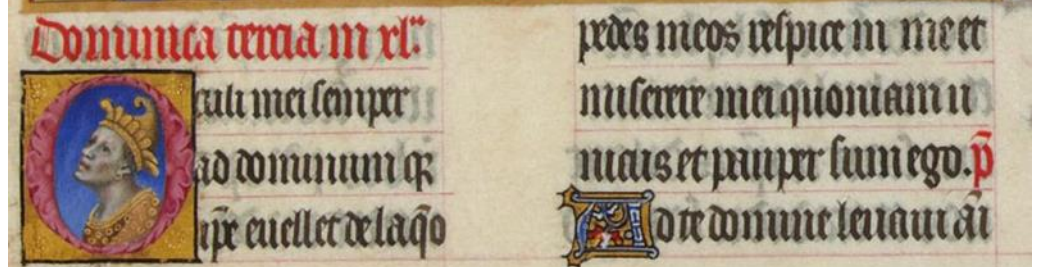 Dominica tercia in xlª.
Oculi mei semper
ad dominum qr̄
ip̄e euellet de laq̄o
pedes meos respice in me et
miserere mei quoniam u
nicus et pauper sum ego. p̄
Ad te domine leuaui ai